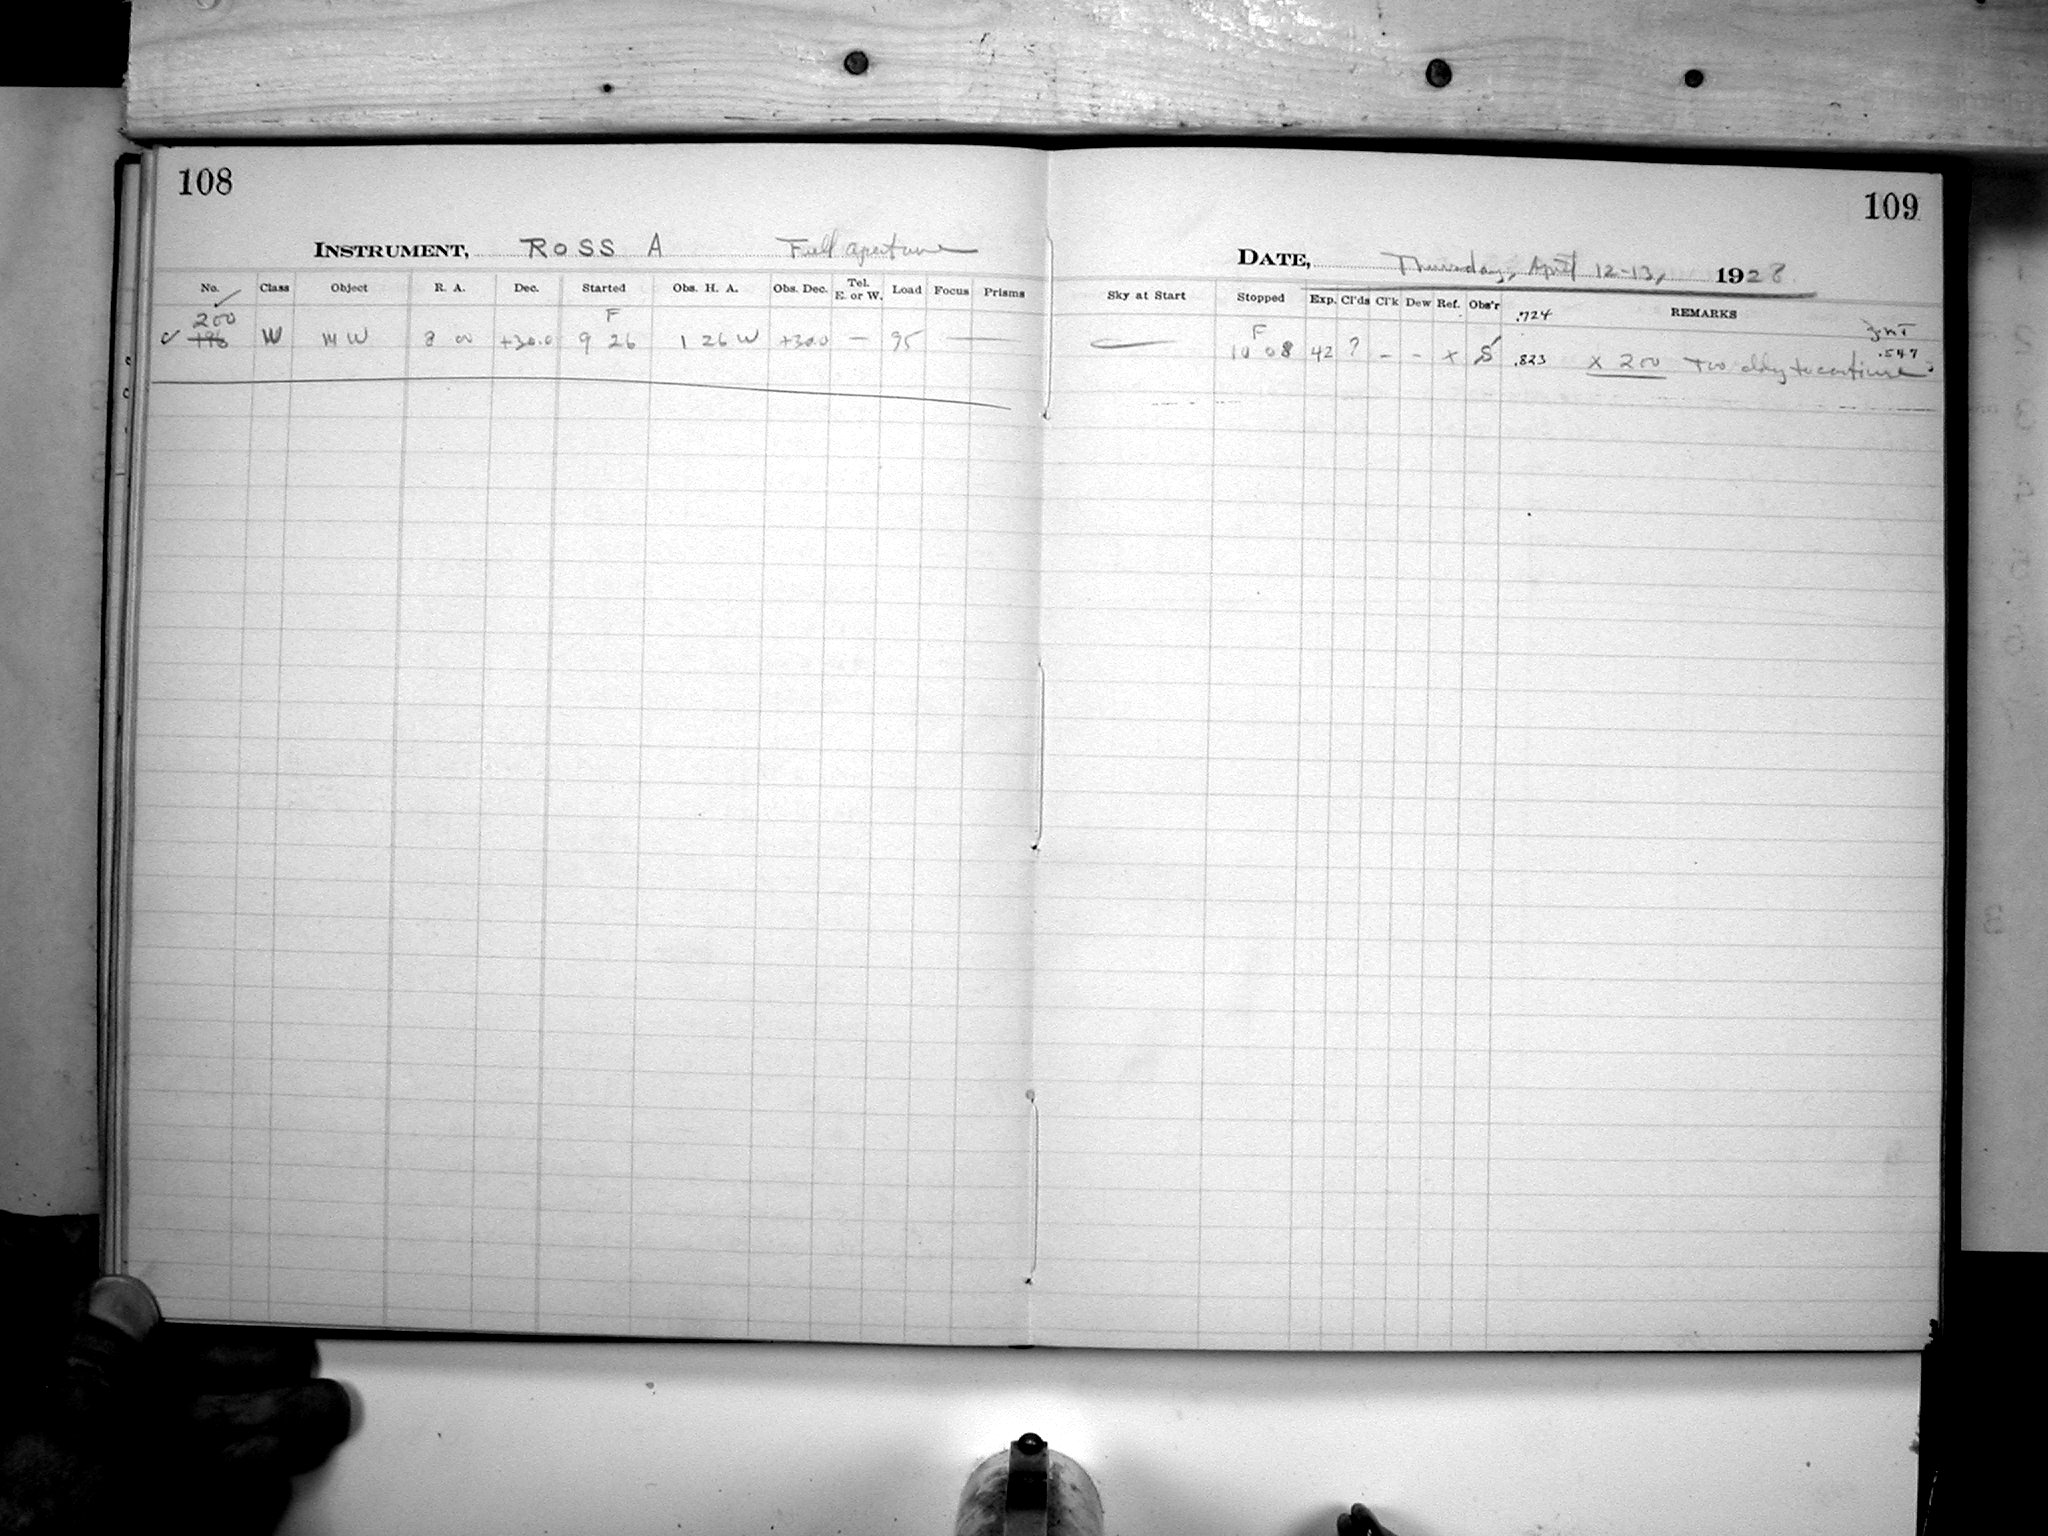 108
109
INSTRUMENT, ROSS A Full aperture
DATE, Thursday, April 12-13, 1928
No. Class Object R. A. Dec. Started Obs. H. A. Obs. Dec. Tel. E. or W. Load Focus Prisms
Sky at Start Stopped Exp. Cl'ds Cl'k Dew Ref. Obs'r REMARKS
200 F
F .724
W MW 8 00 +30.0 9 26 1 26 W +30.0 — 95 —
— 10 08 42 ? - - x S .823 x 200 Too cldy to continue .547